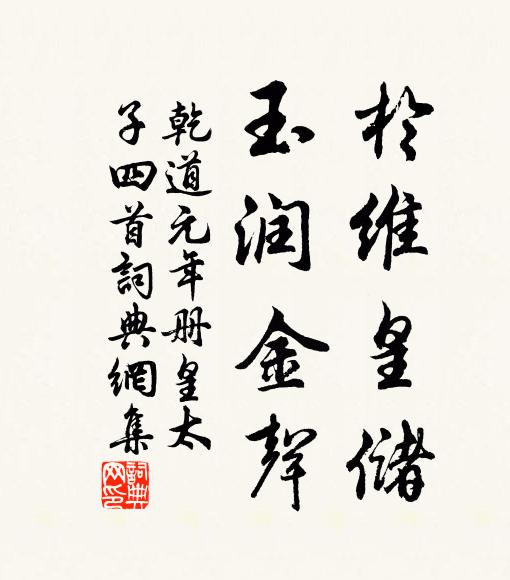 於维皇储
玉润金聲
乾道元年册皇太
子四首詞典網集
詞典网印